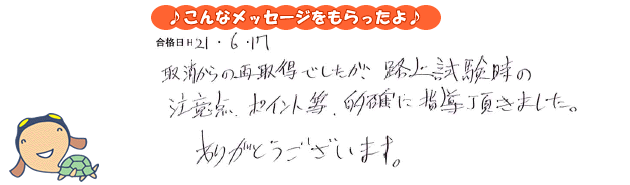 ♪こんなメッセージをもらったよ♪
合格日 H21・6・17
取消からの再取得でしたが、路上試験時の
注意点、ポイント等、的確に指導頂きました。
ありがとうございます。